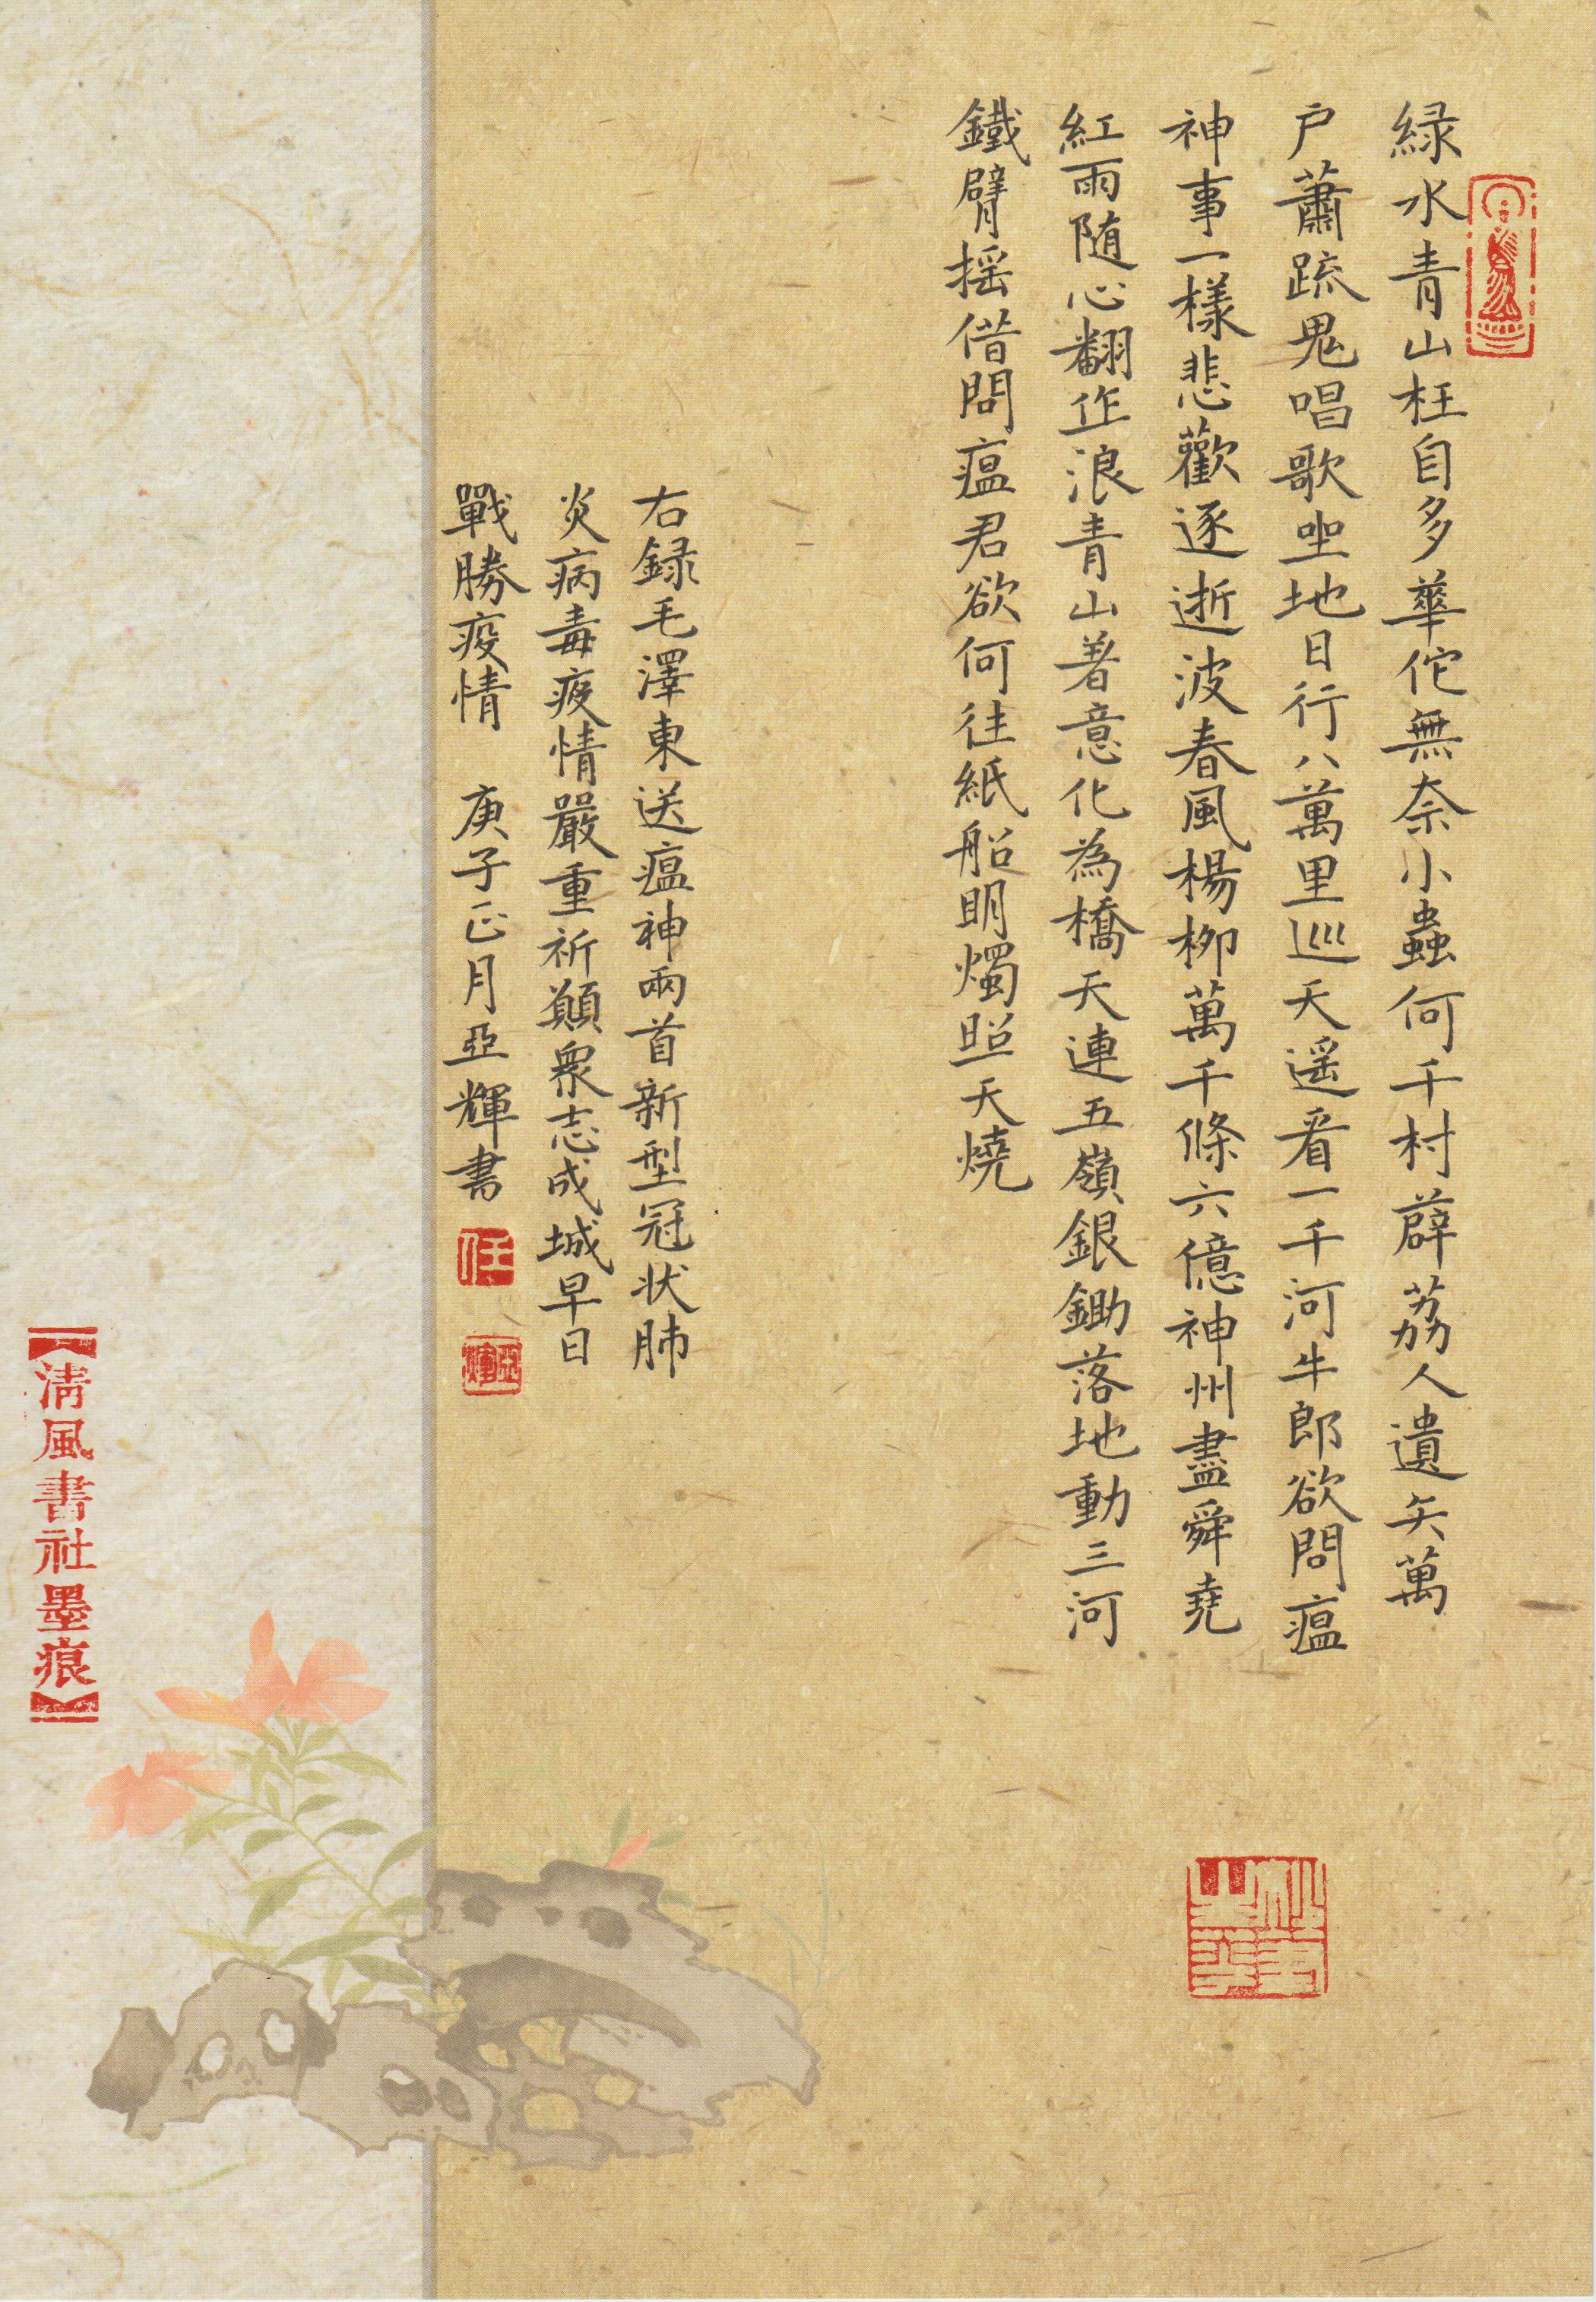 綠水青山枉自多華佗無奈小蟲何千村薜荔人遺矢萬
户蕭疏鬼唱歌坐地日行八萬里巡天遥看一千河牛郎欲問瘟
神事一樣悲歡逐逝波春風楊柳萬千條六億神州盡舜堯
紅雨随心翻作浪青山着意化為橋天連五嶺銀鋤落地動三河
鐵臂摇借問瘟君欲何往紙船明燭照天燒
右録毛澤東送瘟神兩首新型冠状肺
炎病毒疫情嚴重祈願衆志成城早日
戰勝疫情 庚子正月亞輝書
任
亞輝
清風書社墨痕